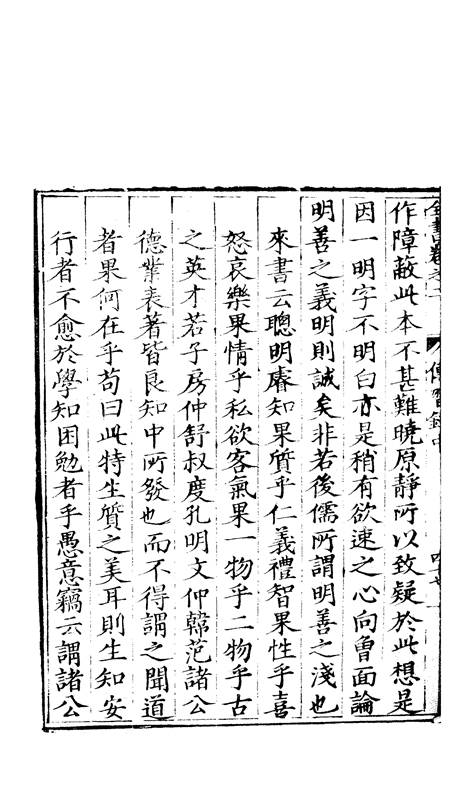 全書卷之二 傳習錄中
作障蔽此本不甚難曉原靜所以致疑於此想是
因一明字不明白亦是稍有欲速之心向曾面論
明善之義明則誠矣非若後儒所謂明善之淺也
來書云聰明睿知果質乎仁義禮智果性乎喜
怒哀樂果情乎私欲客氣果一物乎二物乎古
之英才若子房仲舒叔度孔明文仲韓范諸公
德業表著皆良知中所發也而不得謂之聞道
者果何在乎苟曰此特生質之美耳則生知安
行者不愈於學知困勉者乎愚意竊云謂諸公